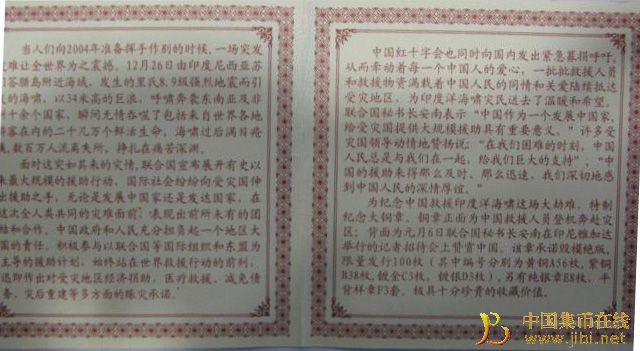 当人们向2004年准备挥手作别的时候，一场突发
灾难让全世界为之震撼。12月26日由印尼西亚苏
答腊岛附近海域，发生的里氏8.9级强烈地震而引
的海啸，以34米高的巨浪，呼啸奔袭东南亚及非
十余个国家，瞬间无情吞噬了包括来自世界各地
客在内的二十几万个鲜活生命，海啸过后满目疮
，数百万人流离失所，挣扎在痛苦深渊。
面对这突如其来的灾情，联合国宣布展开有史以
来最大规模的援助行动，国际社会纷纷向受灾国伸
出援助之手，无论是发展中国家还是发达国家，在
这次全人类共同的灾难面前，表现出前所未有的团
结和合作。中国政府和人民充分担负起一个地区大
国的责任。积极参与以联合国等国际组织和东盟为
主导的援助计划，始终站在世界救援行动的前列，
迅即作出对受灾地区经济捐助，医疗救援，减免债
务，灾后重建等多方面的赈灾承诺。
中国红十字会也同时向国内发出紧急募捐呼吁，
从而牵动着每一个中国人的爱心，一批批救援人员
和救援物资满载着中国人民的同情和关爱陆续抵达
受灾地区，为印度洋海啸灾民送去了温暖和希望。
联合国秘书长安南表示“中国作为一个发展中国家，
给受灾国提供大规模援助具有重要意义。”许多受
灾国领导动情地赞扬说：“在我们困难的时刻，中国
人民总是与我们在一起，给我们巨大的支持”，“中
国的援助来得那么及时、那么迅速，我们深切地感
到中国人民的深情厚谊。”
为纪念中国救援印度洋海啸这场大劫难，特制
纪念大铜章。铜章正面为中国救援人员登机奔赴灾
区；背面为元月6日联合国秘书长安南在印尼雅加达
举行的记者招待会上赞赏中国。该章承诺毁模绝版，
限量发行100枚（其中编号分别为黄铜A56枚，紫铜
B38枚，镀金C3枚，镀银D3枚），另有纯银章E8枚，半
背样章F3套。极具十分珍贵的收藏价值。
中国集币在线
www.jibi.net